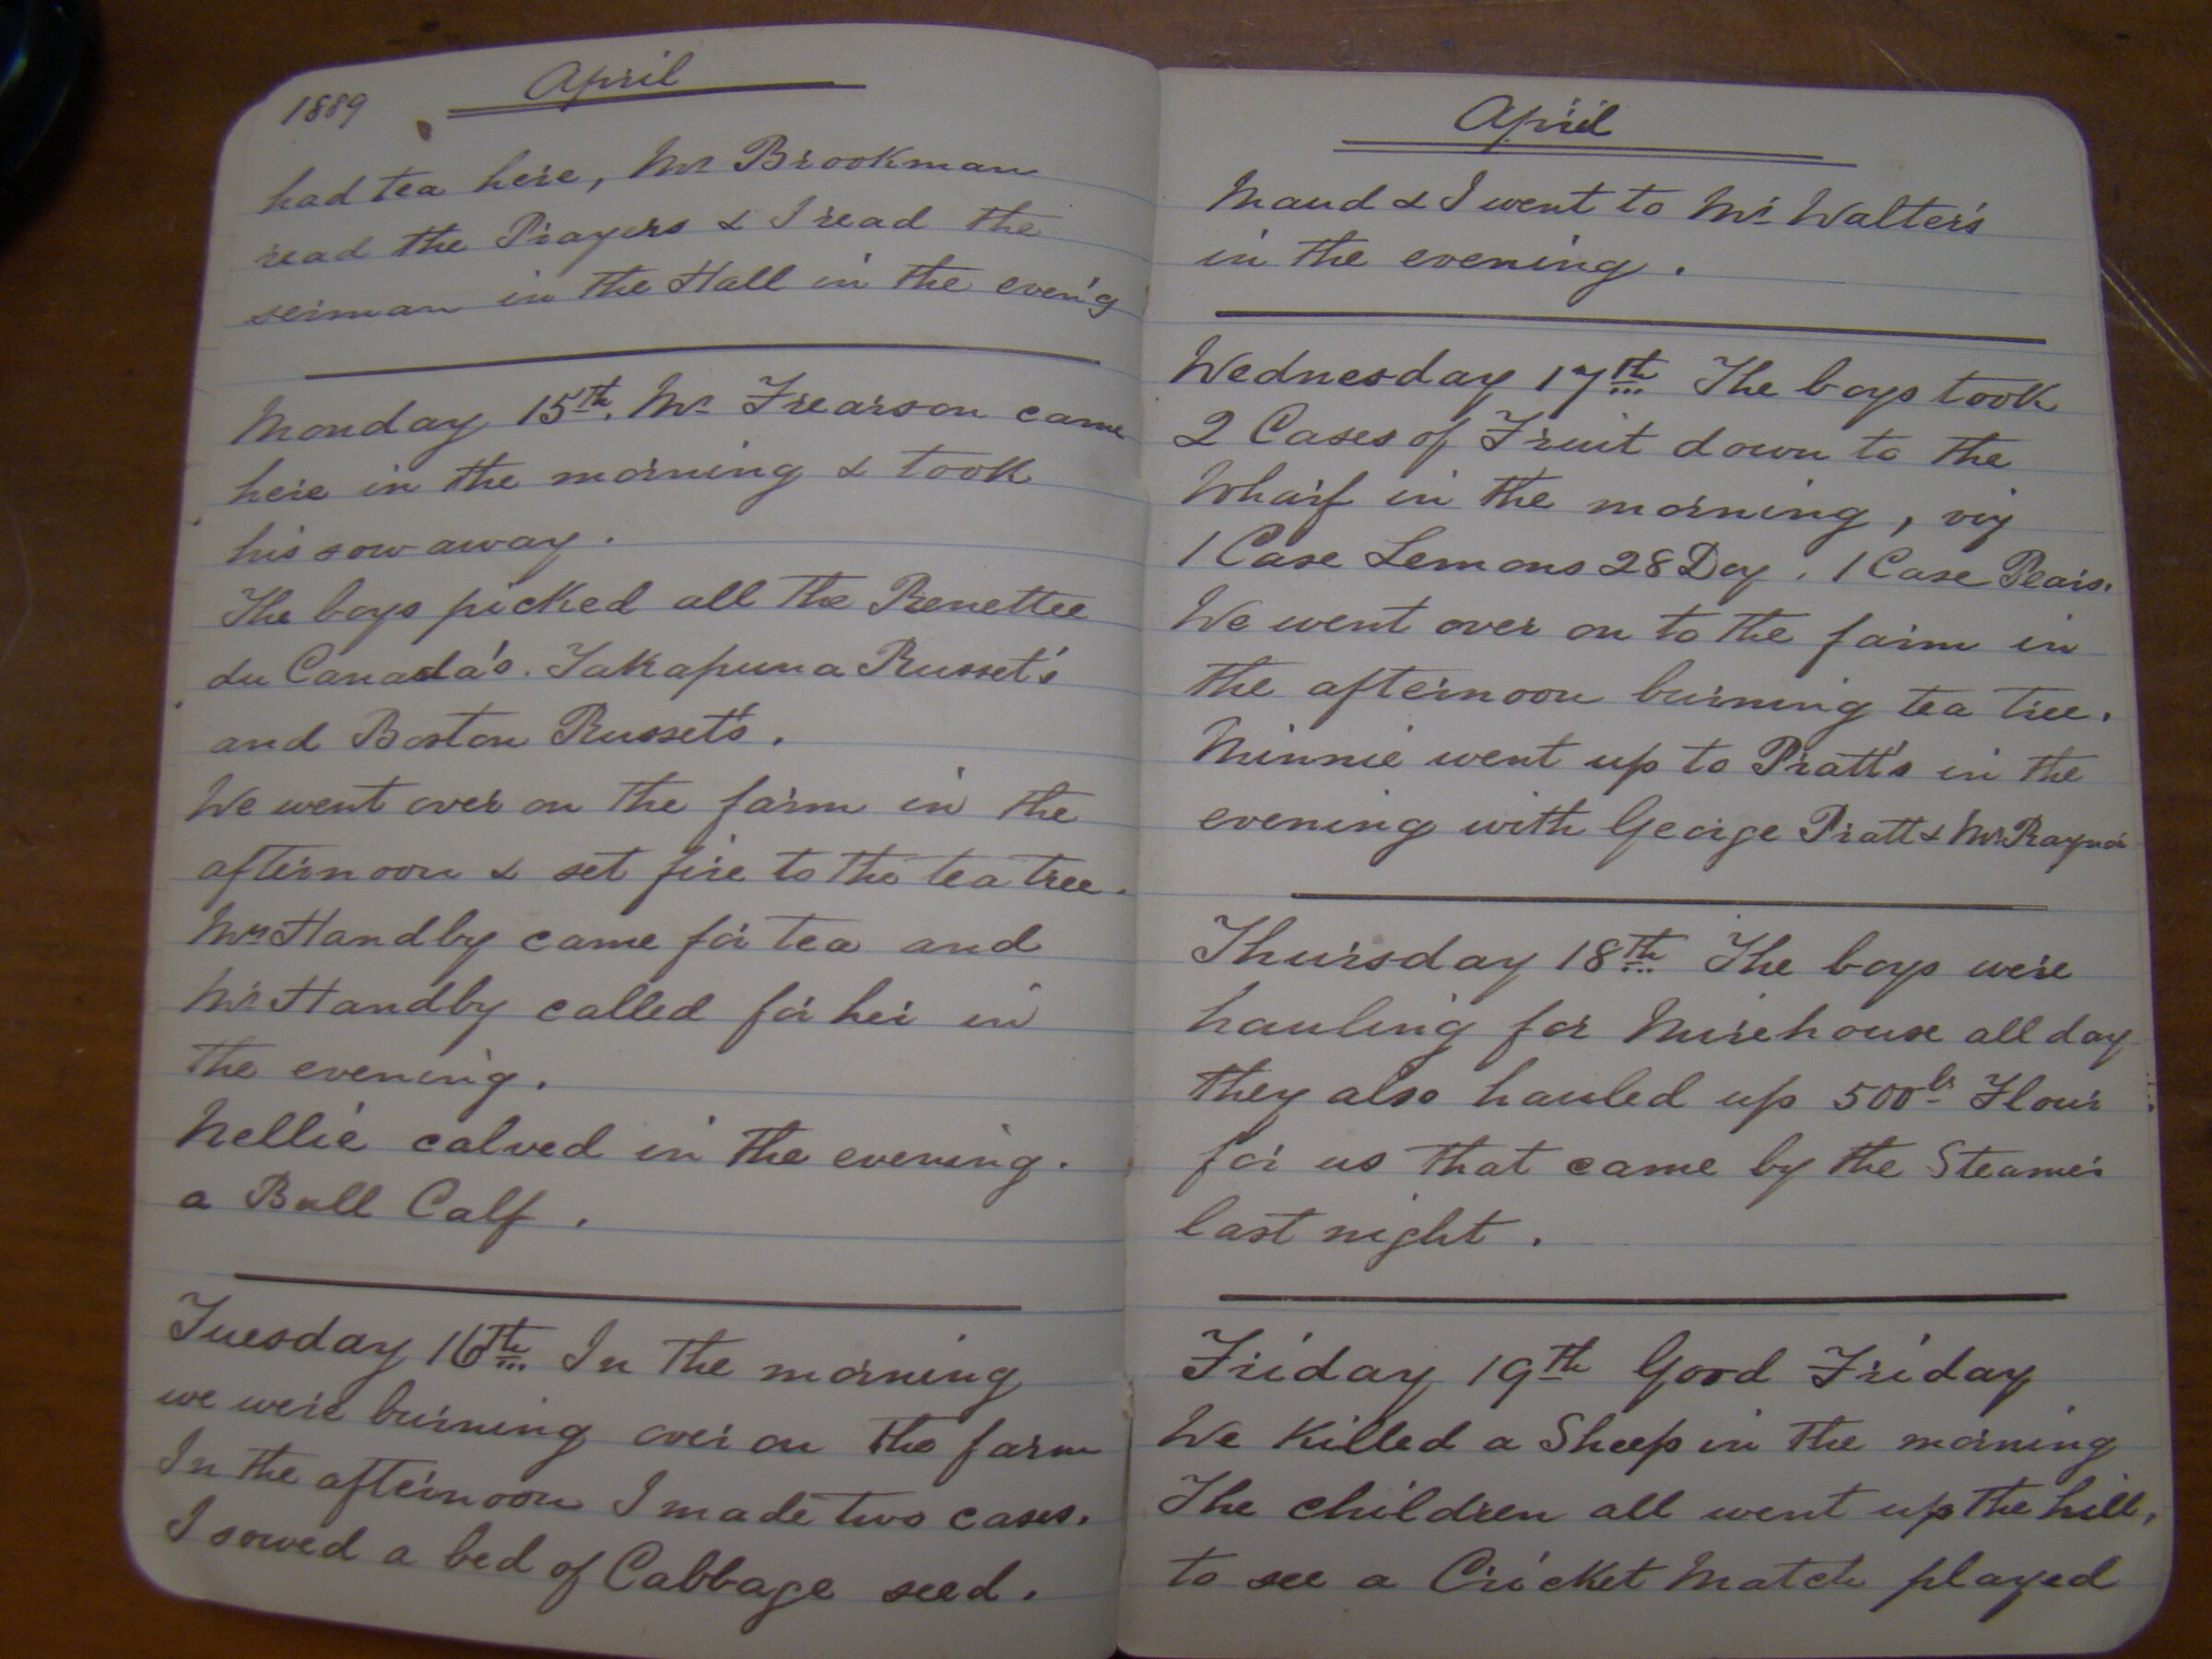 1889
April
had tea here, Mr Brookman
read the Prayers & I read the
serman in the Hall in the even'g
Monday 15th. Mr Frearson came
here in the morning & took
his sow away.
The boys picked all the Renettee
du Canada's. Takapuna Russet's
and Boston Russet's.
We went over on the farm in the
afternoon & set fire to the tea tree.
Mrs Handby came for tea and
Mr Handby called for her in
the evening.
Nellie calved in the evening.
a Bull Calf.
Tuesday 16th In the morning
we were burning over on the farm
In the afternoon I made two cases.
I sowed a bed of Cabbage seed.
April
Maud & I went to Mr Walter's
in the evening.
Wednesday 17th The boys took
2 Cases of Fruit down to the
Wharf in the morning, viz
1 Case Lemons 28 Doz. 1 Case Pears.
We went over on to the farm in
the afternoon burning tea tree.
Minnie went up to Pratt's in the
evening with George Pratt & Mr Raynor
Thursday 18th The boys were
hauling for Mirehouse all day
they also hauled up 500 lbs Flour
for us that came by the Steamer
last night.
Friday 19th Good Friday
We Killed a Sheep in the morning
The children all went up the hill,
to see a Cricket Match played